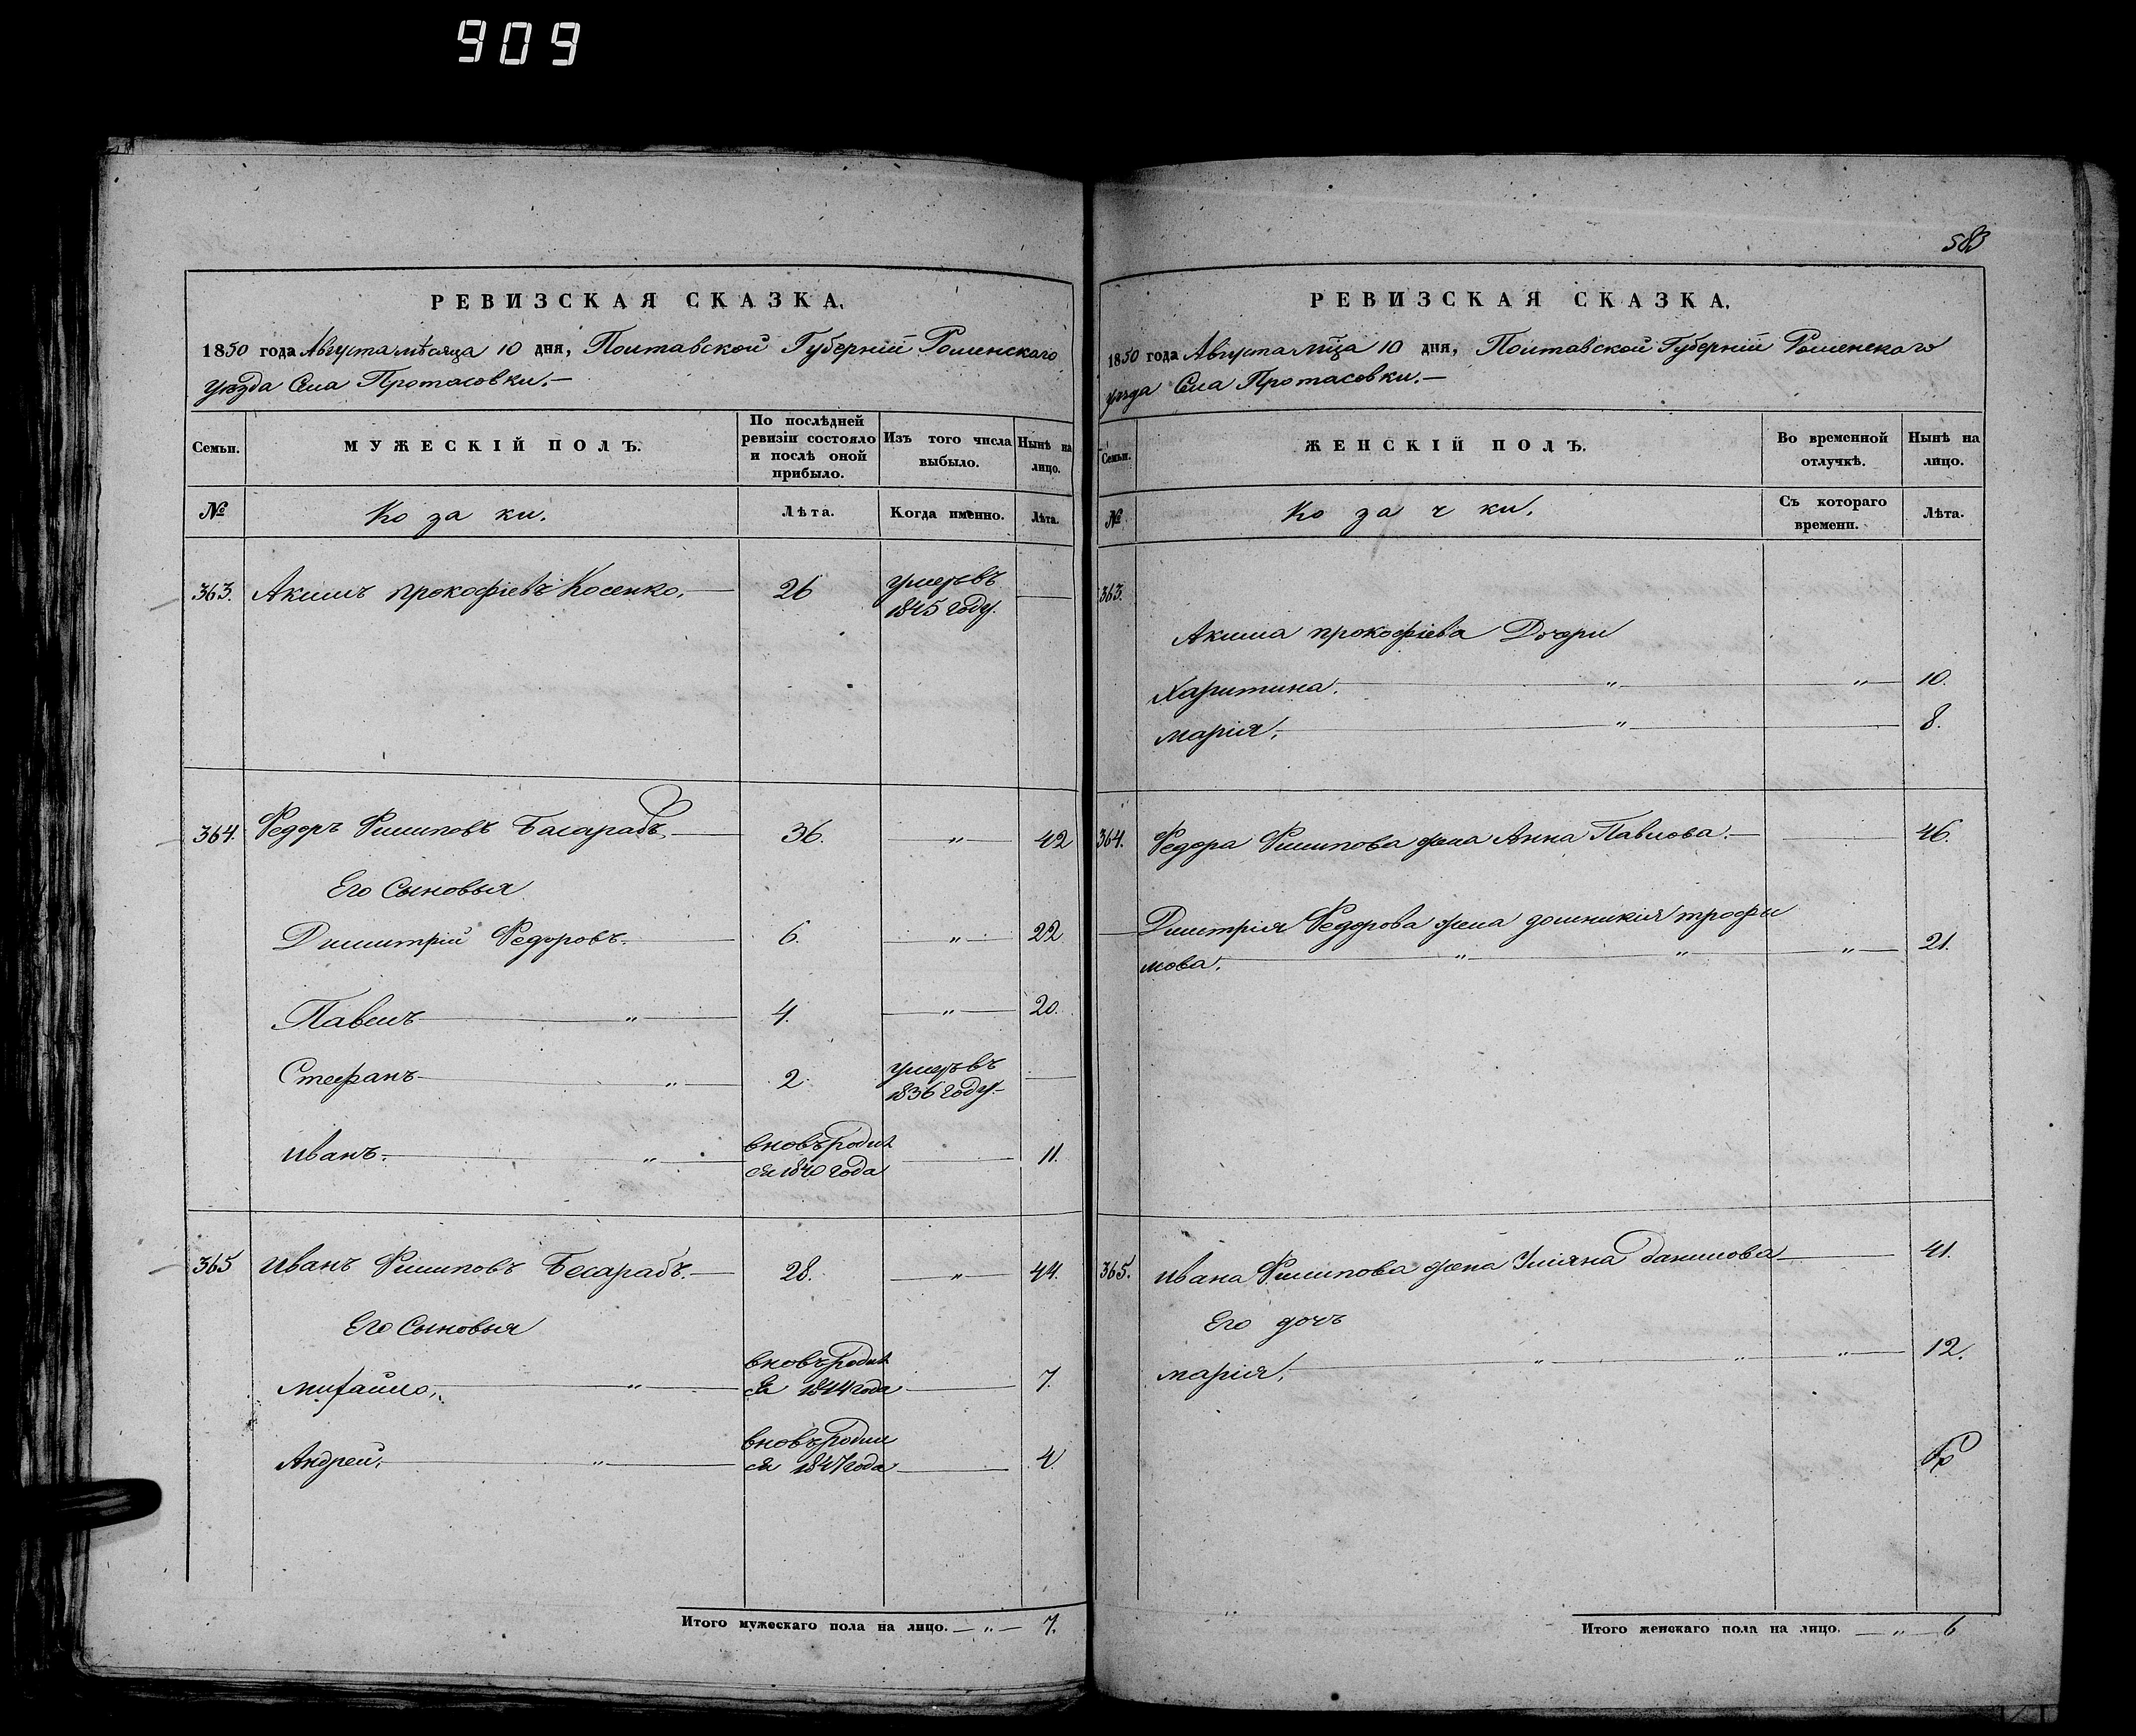 909
РЕВИЗСКАЯ СКАЗКА.
1850 года Августа мѣсяца 10 дня, Полтавской Губернiи Роменскаго
уѣзда Села Протасовки.—
Семьи.
МУЖЕСКІЙ ПОЛЪ.
По послѣдней
ревизіи состояло
и послѣ оной
прибыло.
Изъ того числа
выбыло.
Нынѣ на
лицо.
№
Козаки.
Лѣта.
Когда именно.
Лѣта.
363. Акимъ прокофіевъ Косенко. — 26 умеръ въ —
1845 году.
364. Федоръ Филиповъ Басарабъ — 36. — „ — 42
Его Сыновья
Димитрій Федоровъ. — 6. — „ — 22
Павелъ — „ — 4. — „ — 20.
Стефанъ — „ — 2. умеръ въ —
1836 году.—
иванъ. — „ — вновь родил — 11.
ся 1840 года
365 иванъ Филиповъ Бесарабъ. — 28. — „ — 44.
Его Сыновья
михайло, — „ — вновь родил — 7.
ся 1844 года
Андрей. — „ — вновь родил — 4.
ся 1847 года
Итого мужескаго пола на лицо. — „ — 7.
583
РЕВИЗСКАЯ СКАЗКА.
1850 года Августа мца 10 дня, Полтавской Губерніи Роменскаго
уѣзда Села Протасовки.—
Семьи.
ЖЕНСКІЙ ПОЛЪ.
Во временной
отлучкѣ.
Нынѣ на
лицо.
№
Козачки.
Съ котораго
времени.
Лѣта.
363.
Акима прокофіева Дочери
Харитина. — „ — „ — 10.
марія. — „ — 8.
364. Федора Филипова жена Анна Павлова. — 46.
Димтрія Федорова жена домникія трофи
мова. — „ — „ — „ — 21.
365. ивана Филипова жена Уліяна данилова — 41.
Его дочъ
марія. — „ — „ — „ — 12.
Итого женскаго пола на лицо. — „ — 6